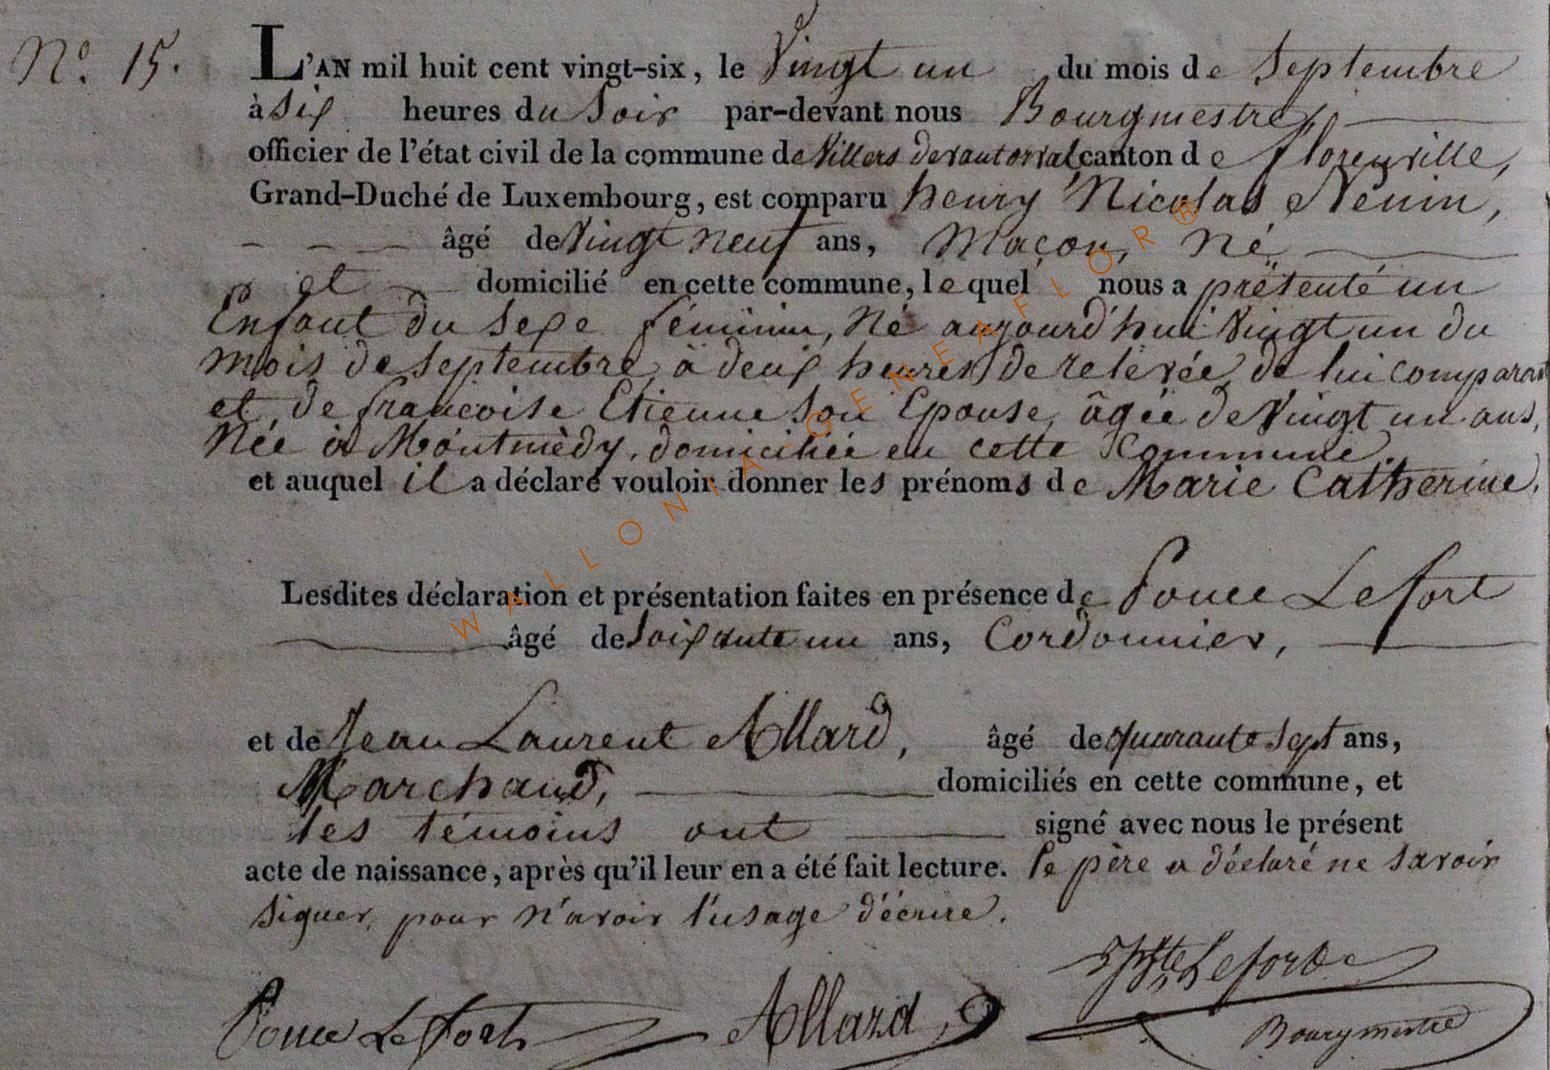 N.° 15.
L'AN mil huit cent vingt-six, le Vingt un du mois de Septembre
à Six heures du Soir par-devant nous Bourgmestre,
officier de l'état civil de la commune de Villers devant orval, canton de florenville,
Grand-Duché de Luxembourg, est comparu henry Nicolas Nenin,
âgé de Vingt Neuf ans, Maçon, Né
et domicilié en cette commune, le quel nous a présenté un
Enfant du Sexe féminin, Né aujourd'hui Vingt un du
Mois de Septembre, à deux heures de relevée, de lui comparant
et de françoise Etienne Son Epouse, âgée de Vingt un ans,
Née à Montmédy, domiciliée en cette Commune.
et auquel il a déclaré vouloir donner les prénoms de Marie Catherine.
Lesdites déclaration et présentation faites en présence de Ponce Lefort
âgé de Soixante un ans, Cordonnier,
et de Jean Laurent Allard, âgé de quarante Sept ans,
Marchand, domiciliés en cette commune, et
les témoins ont signé avec nous le présent
acte de naissance, après qu'il leur en a été fait lecture. le père a déclaré ne savoir
Signer, pour N'avoir l'usage d'écrire.
Ponce Lefort Allard Lefort
Bourgmestre
WALLONIA-GENEAFLOR®